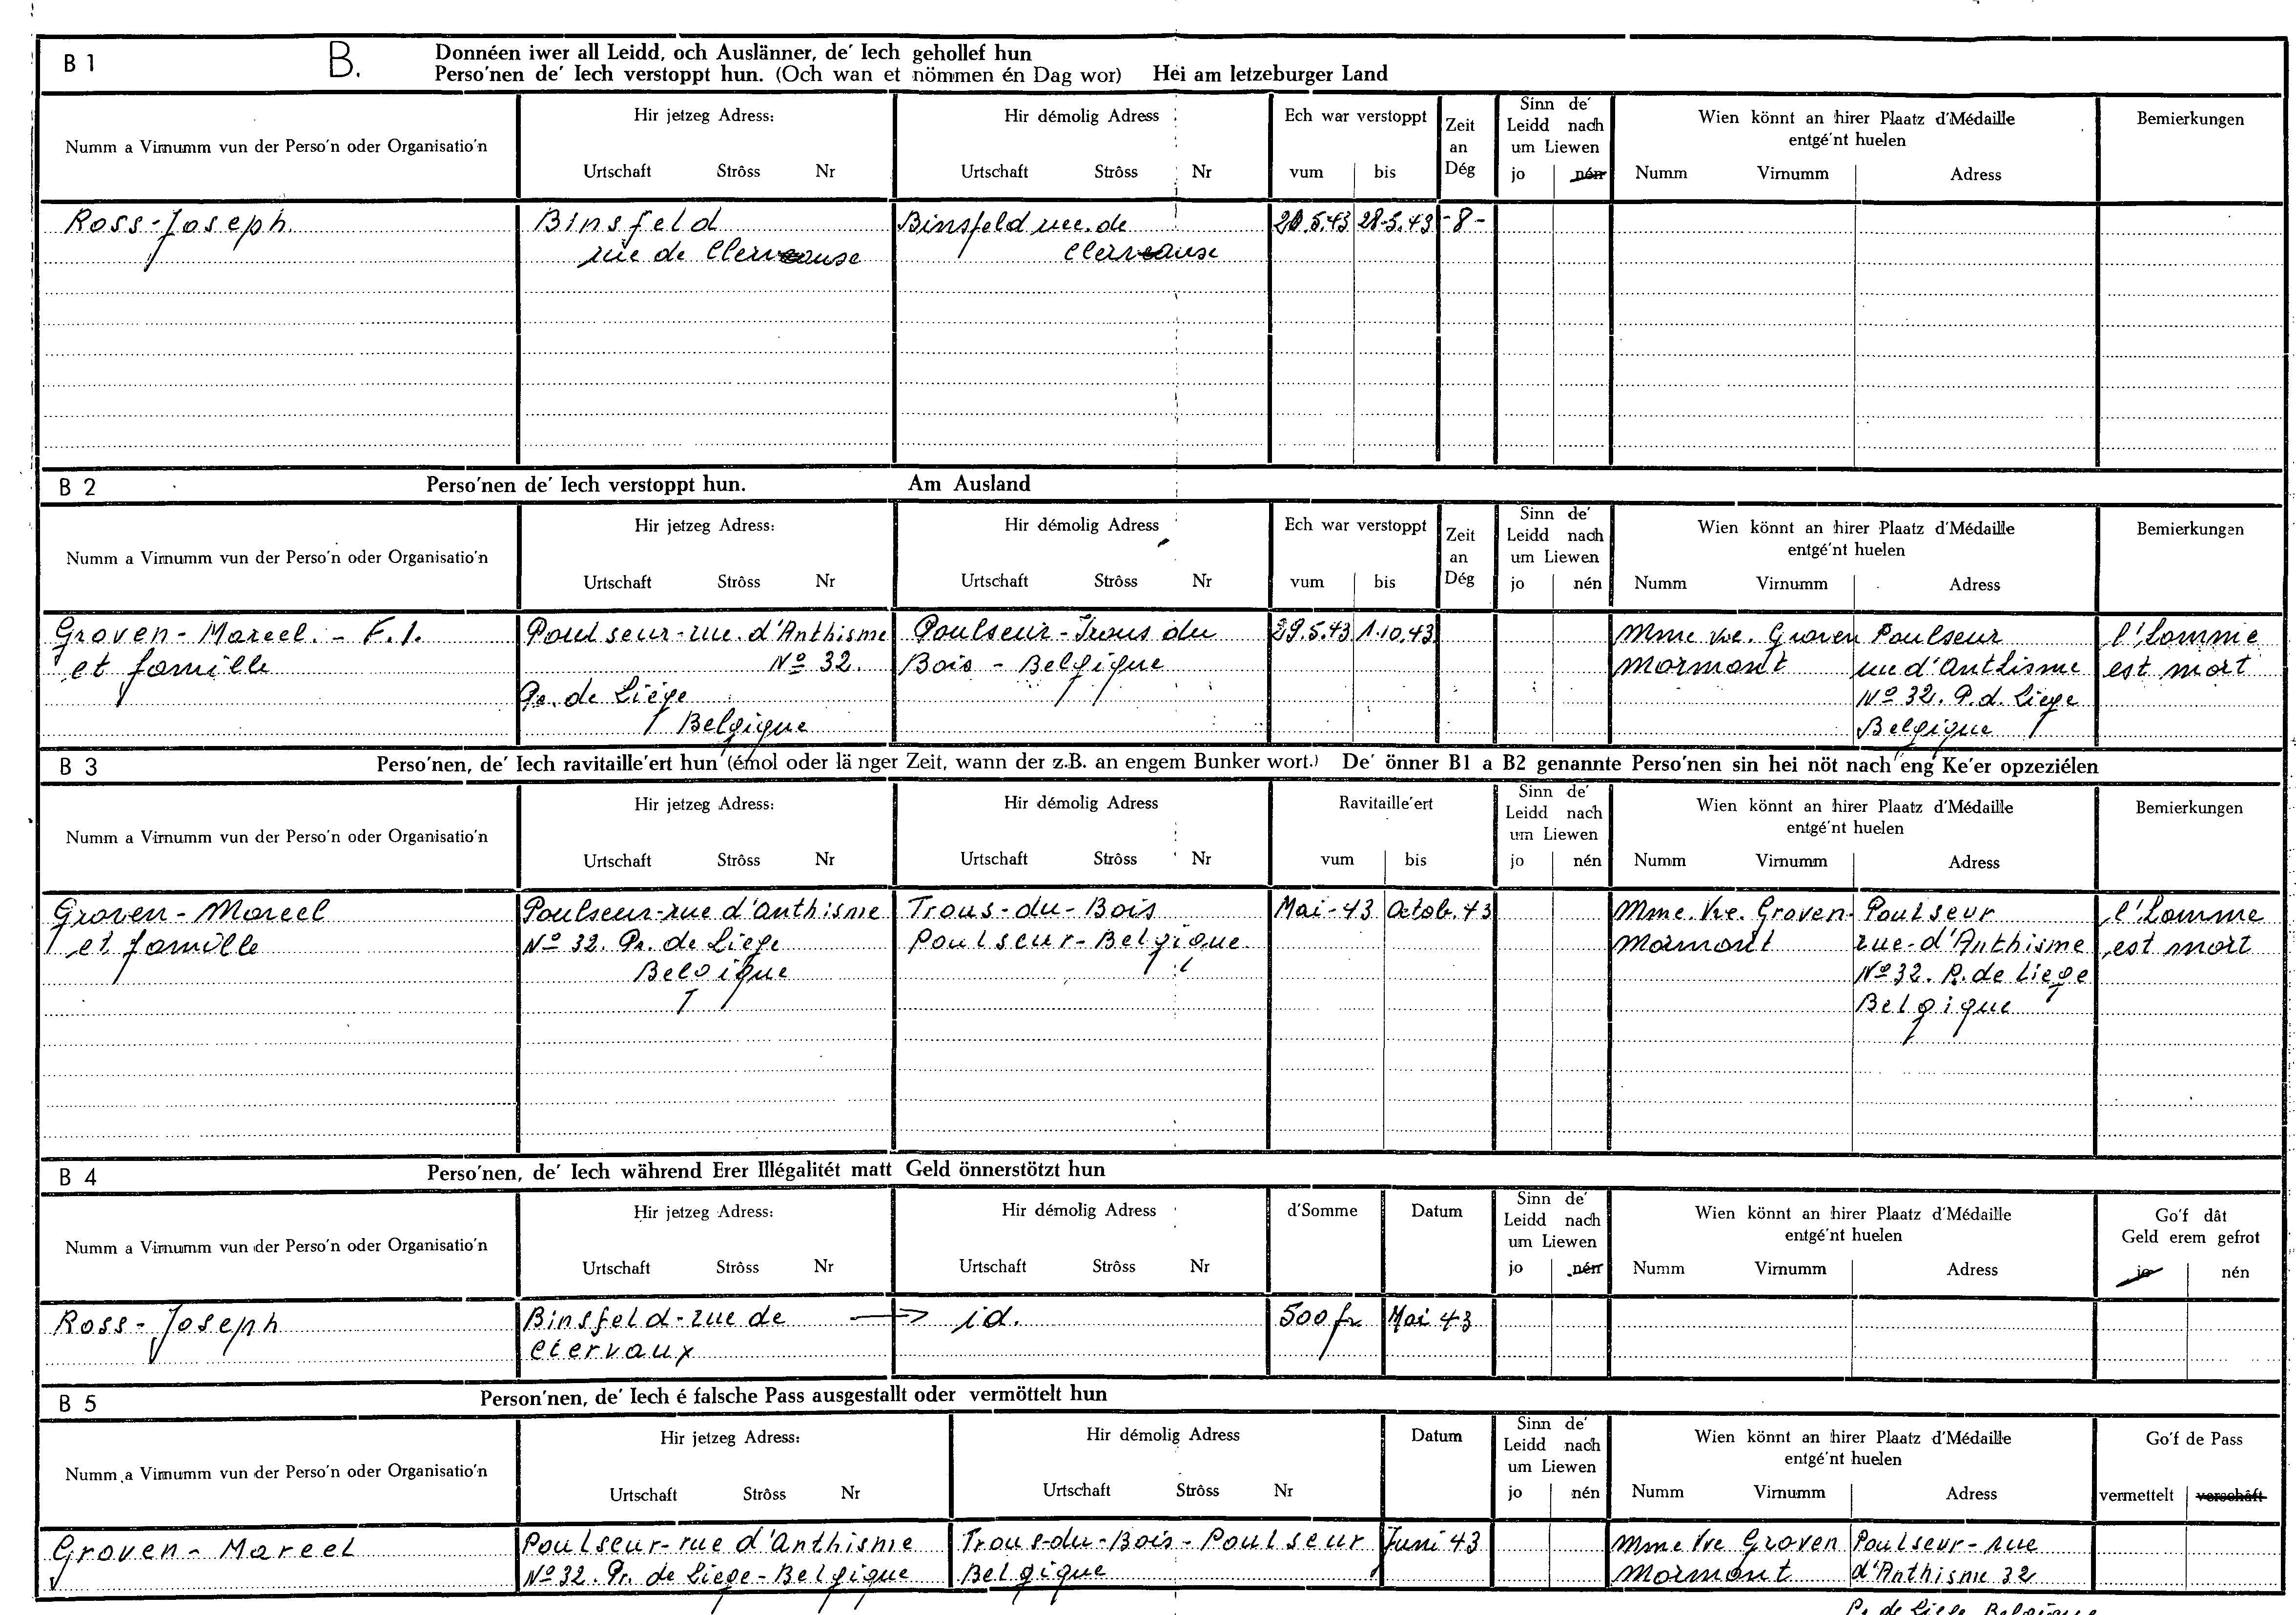 B 1
B.
Donnéen iwer all Leidd, och Auslänner, de' Iech gehollef hun
Perso'nen de' Iech verstoppt hun. (Och wan et nömmen én Dag wor) Hei am letzeburger Land
Numm a Virnumm vun der Perso'n oder Organisatio'n
Hir jetzeg Adress:
Urtschaft Strôss Nr
Hir démolig Adress
Urtschaft Strôss Nr
Ech war verstoppt
vum bis
Zeit
an
Dég
Sinn de'
Leidd nach
um Liewen
jo nén
Wien könnt an hirer Plaatz d'Médaille
entgé'nt huelen
Numm Virnumm Adress
Bemierkungen
Ross-Joseph
Binsfeld
rue de
Binsfeld rue de
28.5.43
-8-
B 2
Perso'nen de' Iech verstoppt hun. Am Ausland
Numm a Virnumm vun der Perso'n oder Organisatio'n
Hir jetzeg Adress:
Urtschaft Strôss Nr
Hir démolig Adress
Urtschaft Strôss Nr
Ech war verstoppt
vum bis
Zeit
an
Dég
Sinn de'
Leidd nach
um Liewen
jo nén
Wien könnt an hirer Plaatz d'Médaille
entgé'nt huelen
Numm Virnumm Adress
Bemierkungen
Groven-Marcel.- F.I.
et famille
Poulseur-rue d'Anthisme
Nº 32.
Pr. de Liège
Belgique
Poulseur-Trous du
Bois - Belgique
29.5.43
1.10.43
Mme Vve. Groven
Mormont
Poulseur
rue d'Anthisme
Nº 32. P.d. Liege
Belgique
l'homme
est mort
B 3
Perso'nen, de' Iech ravitaille'ert hun (émol oder länger Zeit, wann der z.B. an engem Bunker wort.) De' önner B1 a B2 genannte Perso'nen sin hei nöt nach eng Ke'er opzeziélen
Numm a Virnumm vun der Perso'n oder Organisatio'n
Hir jetzeg Adress:
Urtschaft Strôss Nr
Hir démolig Adress
Urtschaft Strôss Nr
Ravitaille'ert
vum bis
Sinn de'
Leidd nach
um Liewen
jo nén
Wien könnt an hirer Plaatz d'Médaille
entgé'nt huelen
Numm Virnumm Adress
Bemierkungen
Groven-Marcel
et famille
Poulseur-rue d'Anthisme
Nº 32. Pr. de Liege
Belgique
Trous-du-Bois
Poulseur-Belgique
Mai-43
Octob.43
Mme. Vve. Groven
Mormont
Poulseur
rue-d'Anthisme
Nº 32. P. de Liege
Belgique
l'homme
est mort
B 4
Perso'nen, de' Iech während Erer Illégalitét matt Geld önnerstötzt hun
Numm a Virnumm vun der Perso'n oder Organisatio'n
Hir jetzeg Adress:
Urtschaft Strôss Nr
Hir démolig Adress
Urtschaft Strôss Nr
d'Somme
Datum
Sinn de'
Leidd nach
um Liewen
jo nén
Wien könnt an hirer Plaatz d'Médaille
entgé'nt huelen
Numm Virnumm Adress
Go'f dât
Geld erem gefrot
jo nén
Ross-Joseph
Binsfeld-rue de
Clervaux
id.
500 fr.
Mai 43
B 5
Person'nen, de' Iech é falsche Pass ausgestallt oder vermöttelt hun
Numm a Virnumm vun der Perso'n oder Organisatio'n
Hir jetzeg Adress:
Urtschaft Strôss Nr
Hir démolig Adress
Urtschaft Strôss Nr
Datum
Sinn de'
Leidd nach
um Liewen
jo nén
Wien könnt an hirer Plaatz d'Médaille
entgé'nt huelen
Numm Virnumm Adress
Go'f de Pass
vermettelt verschâft
Groven-Marcel
Poulseur-rue d'Anthisme
Nº 32. Pr. de Liege-Belgique
Trous-du-Bois-Poulseur
Belgique
Juni 43
Mme Vve Groven
Mormont
Poulseur-rue
d'Anthisme 32
P. de Liege Belgique